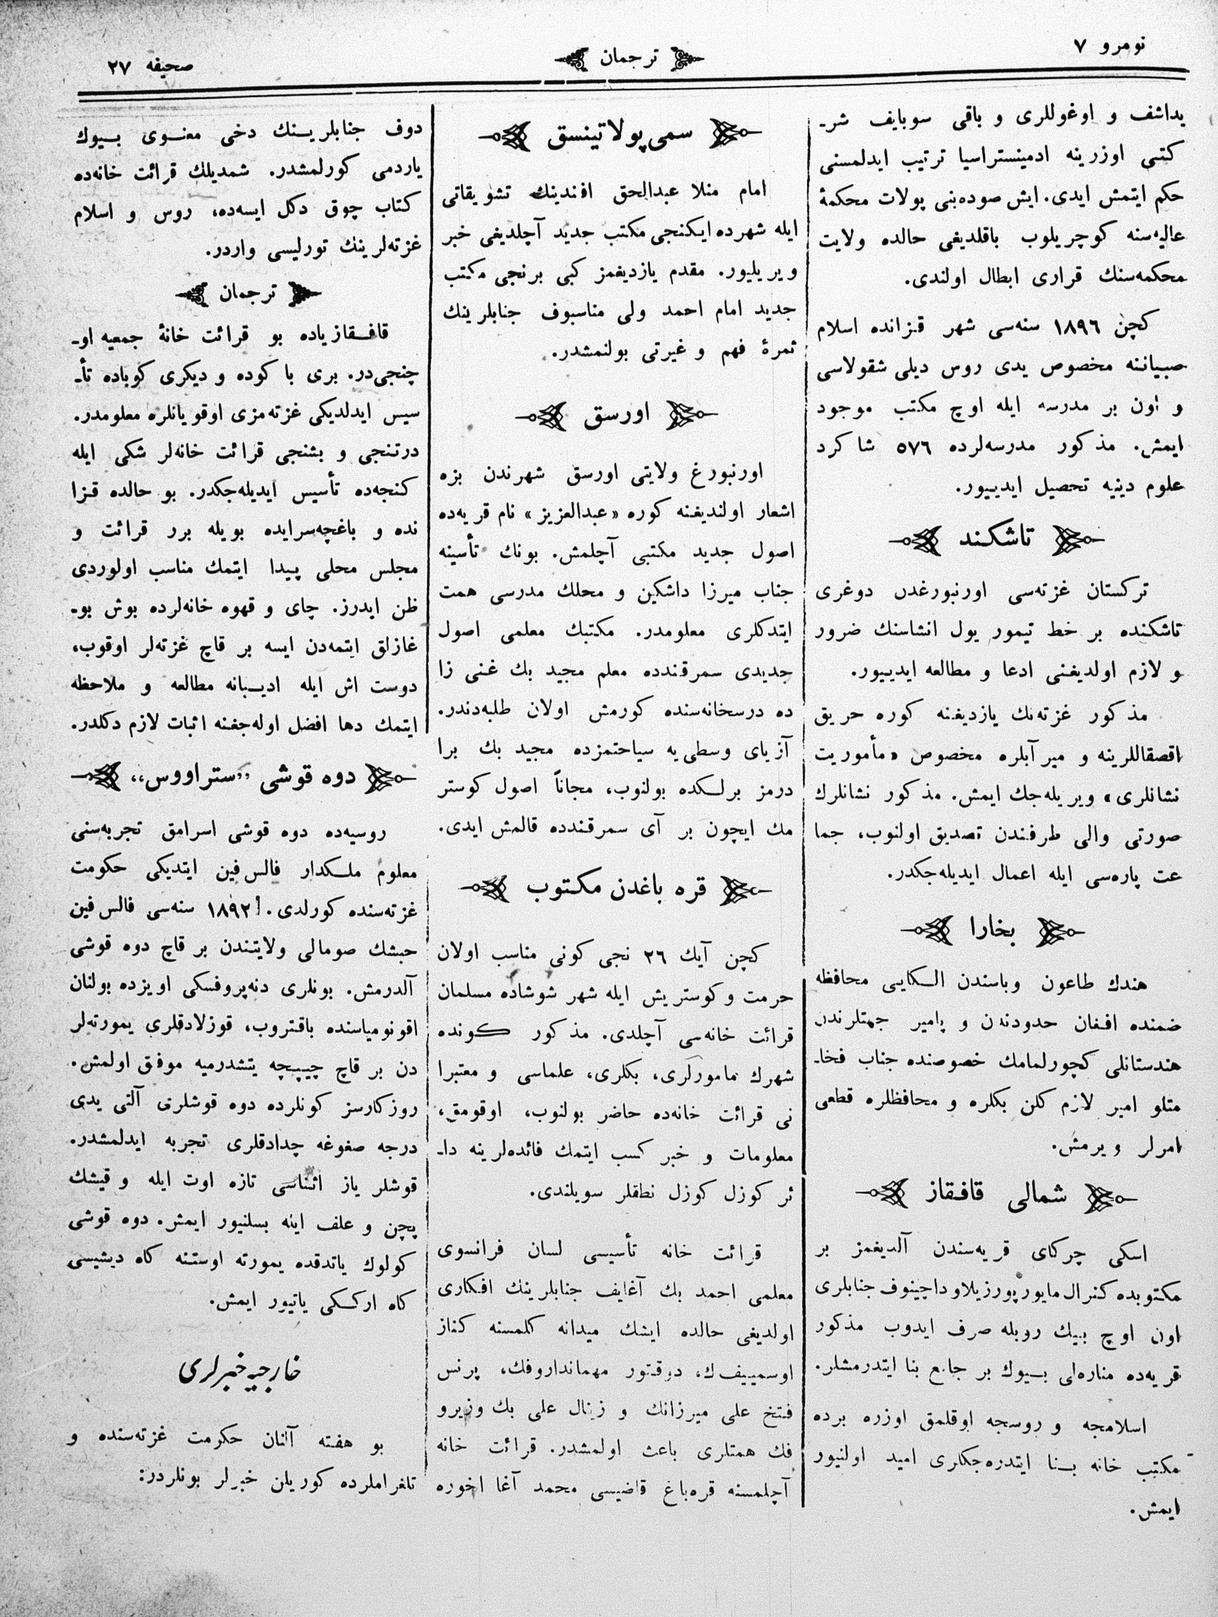 نومرو ٧
ترجمان
صحيفه ٢٧
يداشف و اوغوللری و باقی سوبايف شر۔
كتی اوزرينه ادمينستراسيا ترتيب ايدلمسنی
حكم ايتمش ايدی. ايش صوده‌بنی پولات محكمهٔ
عاليه‌سنه كوچريلوب باقلديغی حالده ولايت
محكمه‌سنك قراری ابطال اولندی.
كچن ١٨٩٦ سنه‌سی شهر قزانده اسلام
صبياننه مخصوص يدی روس ديلی شقولاسی
و اون بر مدرسه ايله اوچ مكتب موجود
ايمش. مذكور مدرسه‌لرده ٥٧٦ شاكرد
علوم دينيه تحصيل ايدييور.
تاشكند
تركستان غزته‌سی اورنبورغدن دوغری
تاشكنده بر خط تيمور يول انشاسنك ضرور
و لازم اولديغنی ادعا و مطالعه ايدييور.
مذكور غزته‌نك يازديغنه كوره حريق
اقصقاللرينه و مير آبلره مخصوص «مأموريت
نشانلری» ويريله‌جك ايمش. مذكور نشانلرك
صورتی والی طرفندن تصديق اولنوب، جما
عت پاره‌سی ايله اعمال ايديله‌جكدر.
بخارا
هندك طاعون وباسندن الكايی محافظه
ضمنده افغان حدودندن و پامير جهتلرندن
هندستانلی كچورلمامك خصوصنده جناب فخا۔
متلو امير لازم كلن بكلره و محافظلره قطعی
امرلر ويرمش.
شمالی قافقاز
اسكی چركای قريه‌سندن آلديغمز بر
مكتوبده كنرال مايور پورزيلاو داچينوف جنابلری
اون اوچ بيك روبله صرف ايدوب مذكور
قريه‌ده مناره‌لی بيوك بر جامع بنا ايتدرمشلر.
اسلامجه و روسجه اوقلمق اوزره برده
مكتب خانه بنا ايتدره‌جكلری اميد اولنيور
ايمش.
سمی پولاتينسق
امام منلا عبدالحق افندينك تشويقاتی
ايله شهرده ايكنجی مكتب جديد آچلديغی خبر
ويريليور. مقدم يازديغمز كبی برنجی مكتب
جديد امام احمد ولی مناسبوف جنابلرينك
ثمرهٔ فهم و غيرتی بولنمشدر.
اورسق
اورنبورغ ولايتی اورسق شهرندن بزه
اشعار اولنديغنه كوره «عبدالعزيز» نام قريه‌ده
اصول جديد مكتبی آچلمش. بونك تأسينه
جناب ميرزا داشكين و محلك مدرسی همت
ايتدكلری معلومدر. مكتبك معلمی اصول
جديدی سمرقندده معلم مجيد بك غنی زا
ده درسخانه‌سنده كورمش اولان طلبه‌دندر.
آزيای وسطی‌يه سياحتمزده مجيد بك برا
درمز برلكده بولنوب، مجاناً اصول كوستر
مك ايچون بر آی سمرقندده قالمش ايدی.
قره باغدن مكتوب
كچن آيك ٢٦ نجی كونی مناسب اولان
حرمت و كوستريش ايله شهر شوشاده مسلمان
قرائت خانه‌سی آچلدی. مذكور كونده
شهرك مامورلری، بكلری، علماسی و معتبرا
نی قرائت خانه‌ده حاضر بولنوب، اوقومق،
معلومات و خبر كسب ايتمك فائده‌لرينه دا۔
ئر كوزل كوزل نطقلر سويلندی.
قرائت خانه تأسيسی لسان فرانسوی
معلمی احمد بك آغايف جنابلرينك افكاری
اولديغی حالده ايشك ميدانه كلمسنه كناز
اوسمييفك، دوقتور مهمانداروفك، پرنس
فتخ علی ميرزانك و زينال علی بك وزيرو
فك همتلری باعث اولمشدر. قرائت خانه
آچلمسنه قره‌باغ قاضيسی محمد آغا اخوره
دوف جنابلرينك دخی معنوی بيوك
ياردمی كورلمشدر. شمديلك قرائت خانه‌ده
كتاب چوق دكل ايسه‌ده، روس و اسلام
غزته‌لرينك تورليسی واردر.
ترجمان
قافقازياده بو قرائت خانهٔ جمعيه او۔
چنجی‌در. بری باكوده و ديكری كوباده تأ۔
سيس ايدلديكی غزته‌مزی اوقويانلره معلومدر.
درتنجی و بشنجی قرائت خانه‌لر شكی ايله
كنجه‌ده تأسيس ايديله‌جكدر. بو حالده قزا
نده و باغچه‌سرايده بويله برر قرائت و
مجلس محلی پيدا ايتمك مناسب اولوردی
ظن ايدرز. چای و قهوه خانه‌لرده بوش بو۔
غازلق ايتمه‌دن ايسه بر قاچ غزته‌لر اوقوب،
دوست اش ايله اديبانه مطالعه و ملاحظه
ايتمك دها افضل اوله‌جغنه اثبات لازم دكلدر.
دوه قوشی ,,ستراووس،،
روسيه‌ده دوه قوشی اسرامق تجربه‌سنی
معلوم ملكدار فالس‌فين ايتديكی حكومت
غزته‌سنده كورلدی. ١٨٩٢ سنه‌سی فالس‌فين
حبشك صومالی ولايتندن بر قاچ دوه قوشی
آلدرمش. بونلری دنه‌پروفسكی اويزده بولنان
اقونومياسنده باقتروب، قوزلادقلری يمورته‌لر
دن بر قاچ چيپچه يتشدرميه موفق اولمش.
روزكارسز كونلرده دوه قوشلری آلتی يدی
درجه صغوغه چدادقلری تجربه ايدلمشدر.
قوشلر ياز اثناسی تازه اوت ايله و قيشك
پچن و علف اينه بسلنيور ايمش. دوه قوشی
كولوك ياتدقده يمورته اوستنه كاه ديشيسی
كاه ارككی ياتيور ايمش.
خارجيه خبرلری
بو هفته آلنان حكومت غزته‌سنده و
تلغراملرده كوريلن خبرلر بونلردر: